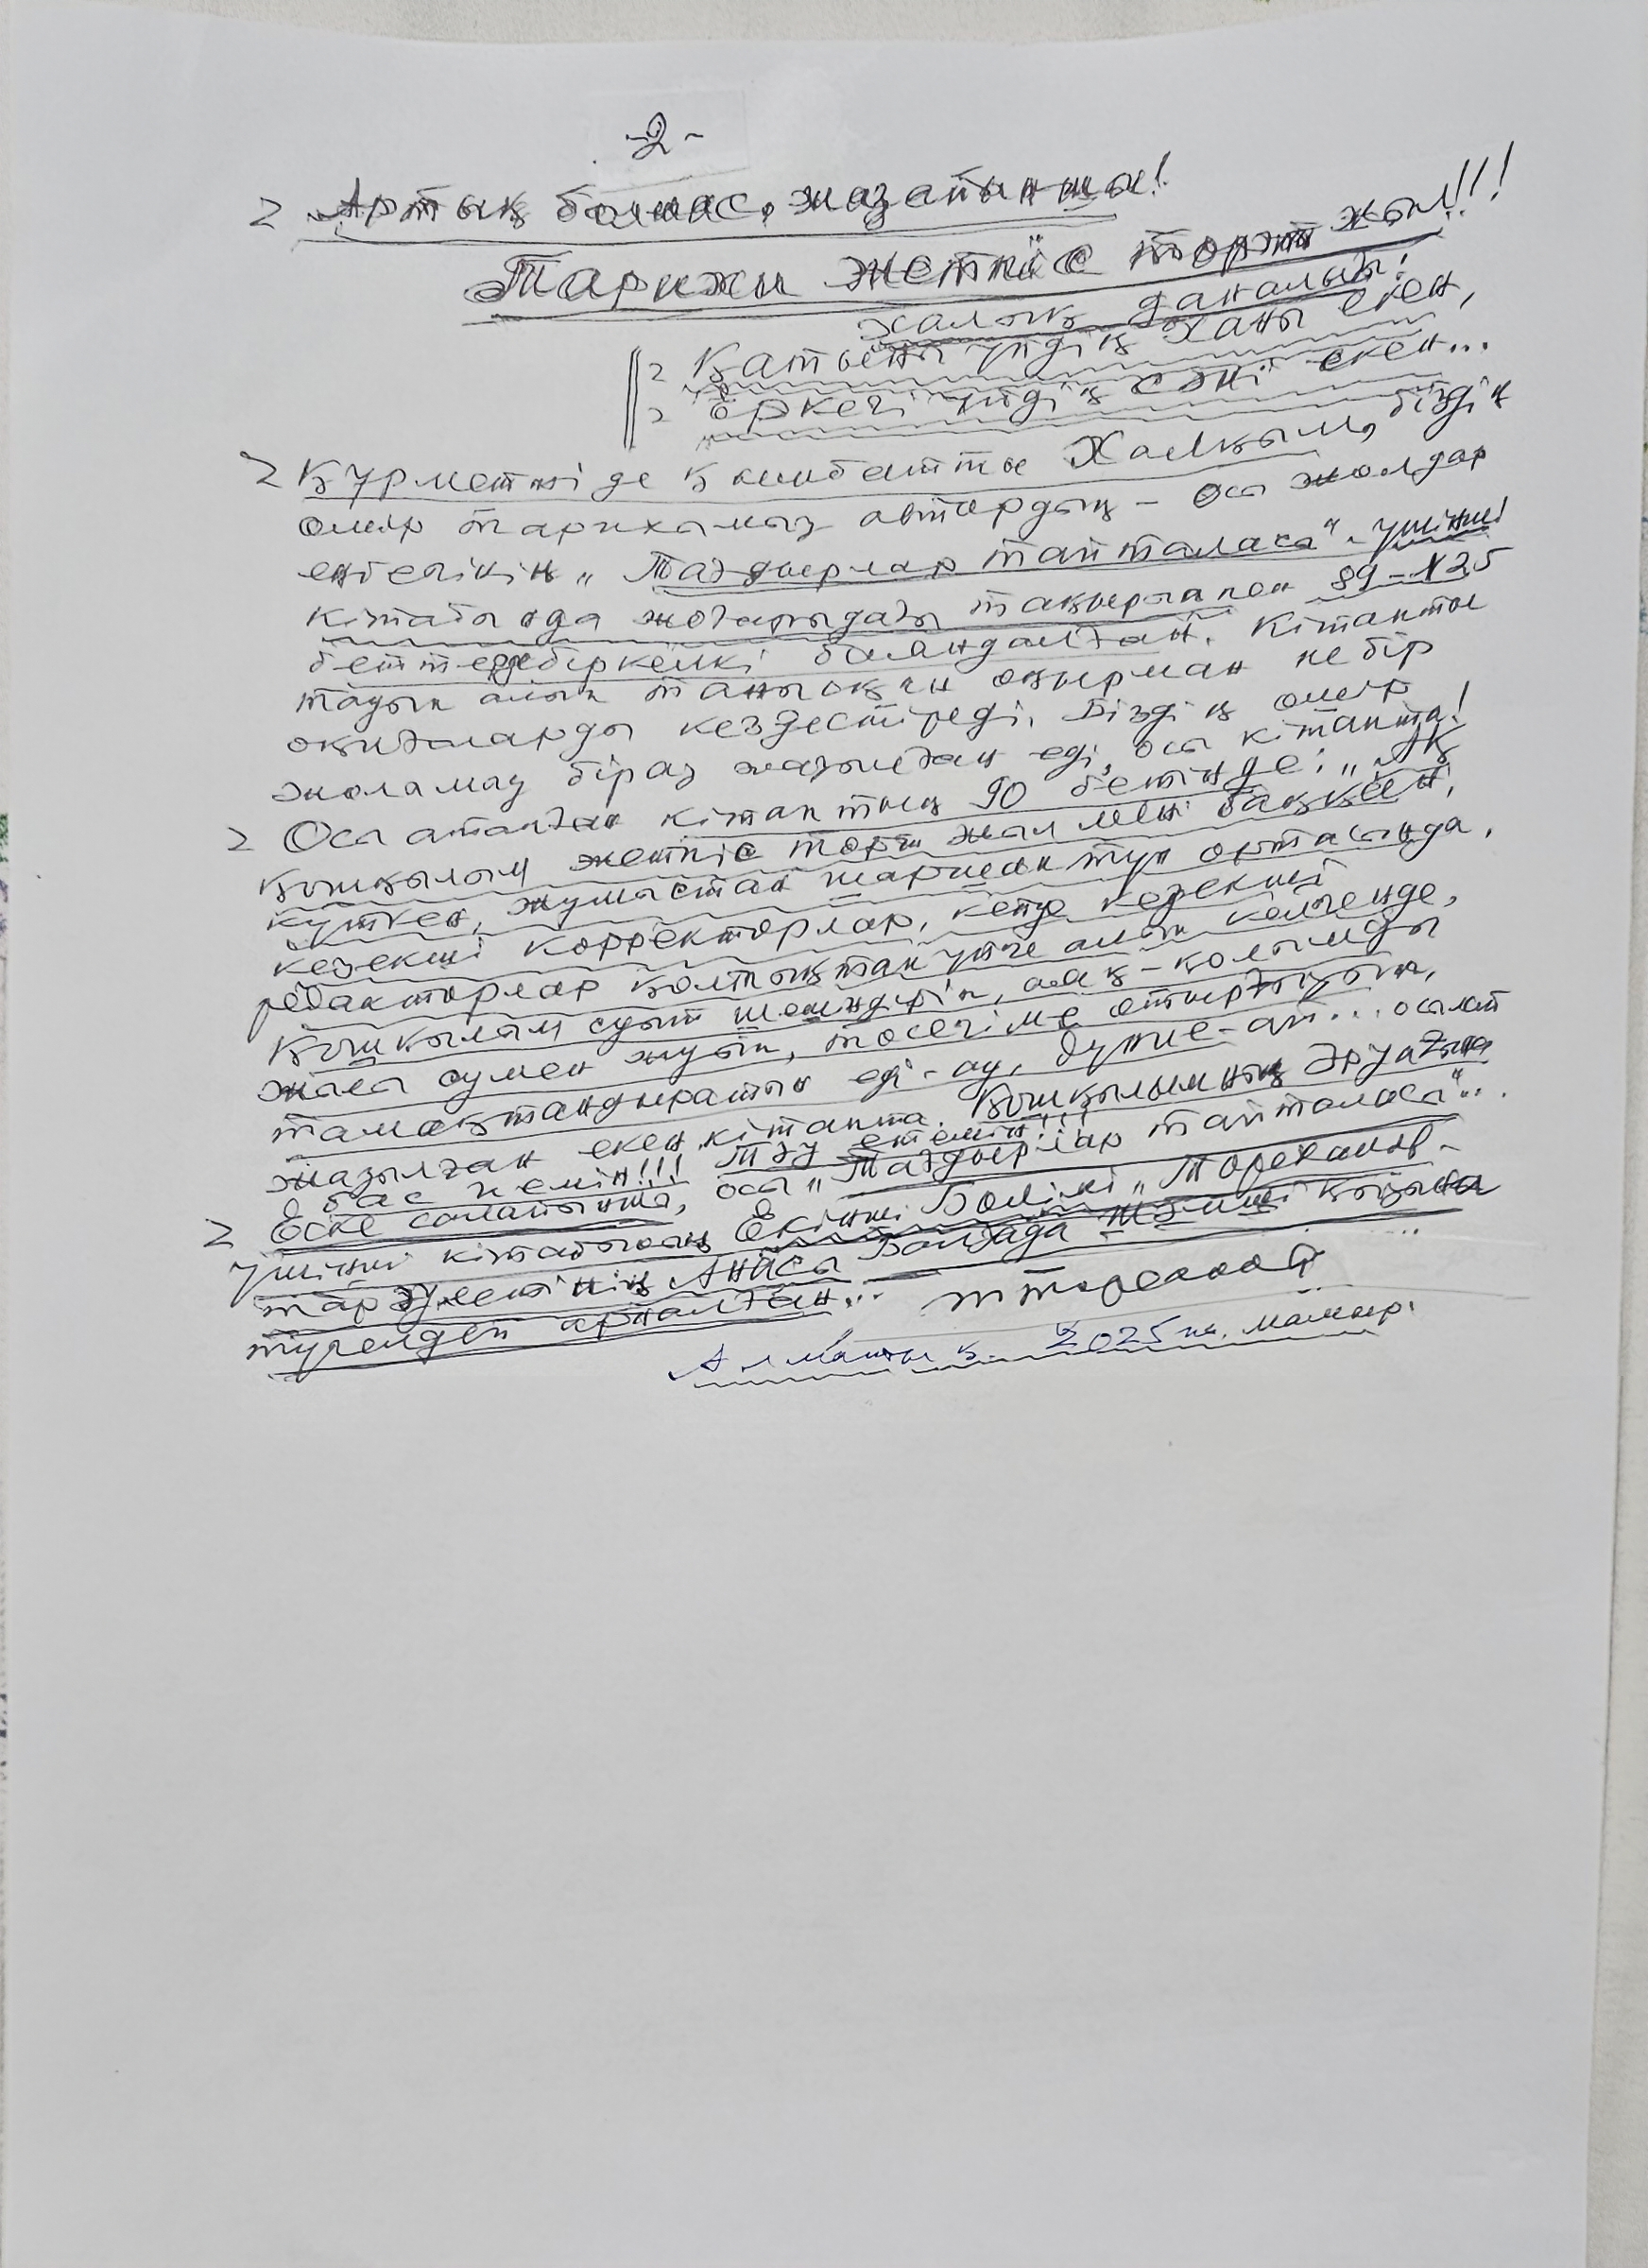 -2-
Артық болмас, жазатыным!
Тарихи жетпіс төрт жыл!!!
Халық даналығы:
Қатыны үйдің ханы екен,
Еркегі үйдің сәні екен...
Құрметті де қымбатты Халқым, біздің
өмір тарихымыз автордың - осы жолдар
еңбегінің „Тағдырлар тайталасы". үшінші
кітабында жоғарыдағы тақырыппен 89-125
беттерде біркелкі баяндалған. Кітапты
тауып алып таныққан оқырман не бір
оқиғаларды кездестіреді. Біздің өмір
жоламыз біраз жазылған еді, осы кітапта!
Осы аталған кітаптың 90 бетінде: „Ақ
Қошқылым жетпіс төрт жыл мені баққан,
күткен, жұмыстан шаршап түн ортасында,
кезекші корректорлар, кейде кезекші
редакторлар қолтықтап үйге алып келгенде,
Қошқылым суыт шешіндіріп, аяқ-қолымды
жылы сумен жуып, төсегіме отырғызып,
тамақтандыратын еді-ау, дүние-ай... осылай
жазылған екен, кітапта. Қошқылымның Әруағына
бас иемін!!! Тәу етемін!!!
Еске салатыным, осы „Тағдырлар тайталасы"...
үшінші кітабының Екінші Бөлімі „Төреханов-
тар әулетінің Анасы Болғада
түгелдей арналған...
Алматы қ. 2025 ж. мамыр.